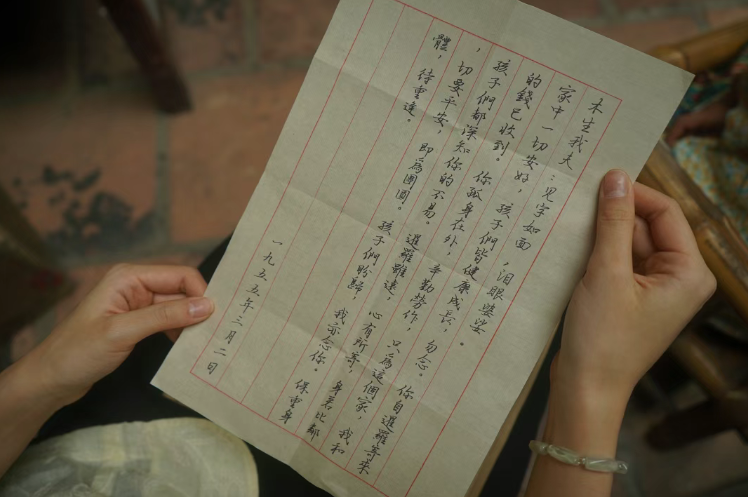 木生我夫：见字如面，泪眼婆娑。
家中一切安好，孩子們皆健康成長，勿念。你自暹羅寄來
的錢已收到。你孤身在外，辛勤勞作，只為這個家，我和
孩子們都深知你的不易。暹羅雖遠，心有所寄，身若比鄰
，一切要平安，即為團圓。孩子們盼歸，我亦念你。保重身
體，待重逢。
一九五五年三月二日